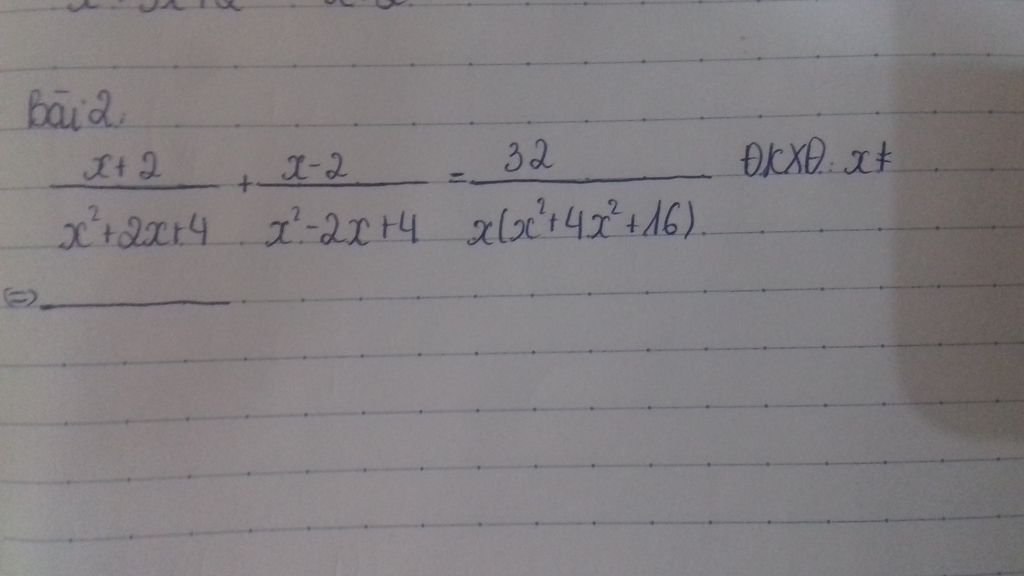 Bài 2.
x+2 / x²+2x+4 + x-2 / x²-2x+4 = 32 / x(x²+4x²+16). ĐKXĐ: x≠
⇔